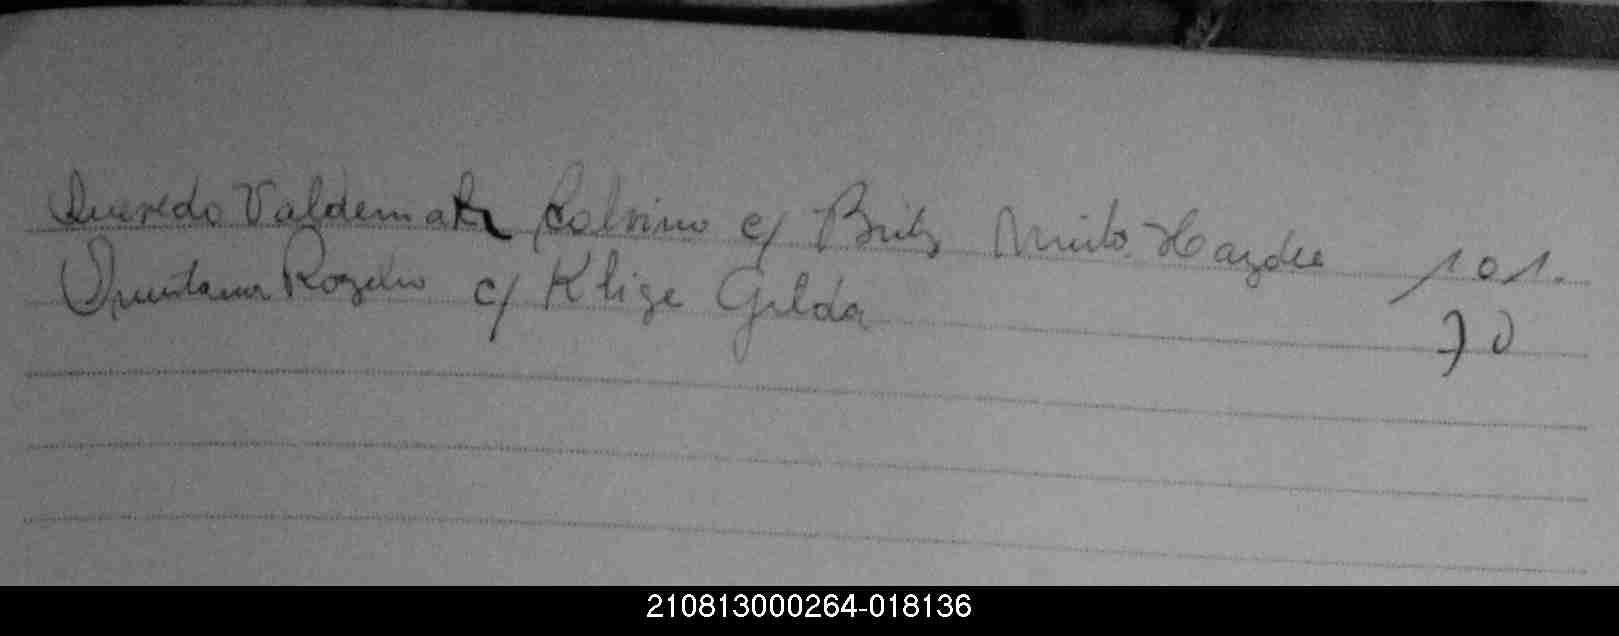 Quevedo Valdemar Calvino c/ Brits Mirta Haydee 101.
Quintana Rogelio c/ Klige Gilda 70
210813000264-018136